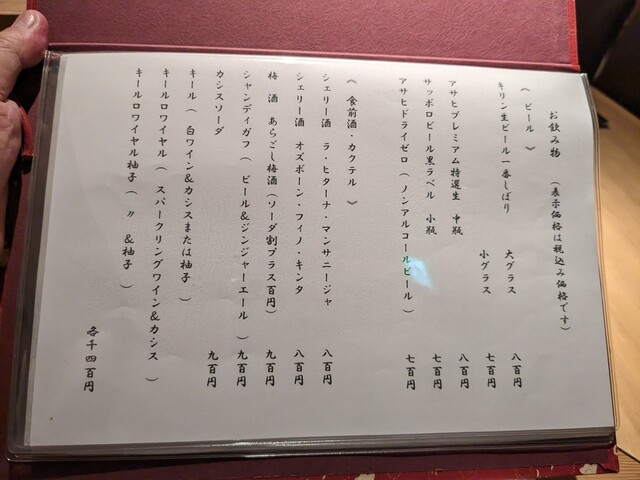 お飲み物　（表示価格は税込み価格です）
《 ビール 》
キリン生ビール一番しぼり　大グラス　八百円
小グラス　七百円
アサヒプレミアム特選生　中瓶　八百円
サッポロビール黒ラベル　小瓶　七百円
アサヒドライゼロ（ノンアルコールビール）　七百円
《 食前酒・カクテル 》
シェリー酒　ラ・ヒターナ・マンサニージャ　八百円
シェリー酒　オズボーン・フィノ・キンタ　八百円
梅　酒　あらごし梅酒（ソーダ割プラス百円）　九百円
シャンディガフ（ ビール＆ジンジャーエール ）　九百円
カシスソーダ　九百円
キール（ 白ワイン＆カシスまたは柚子 ）
キールロワイヤル（ スパークリングワイン＆カシス ）
キールロワイヤル柚子（ 〃 ＆柚子 ）
各千四百円